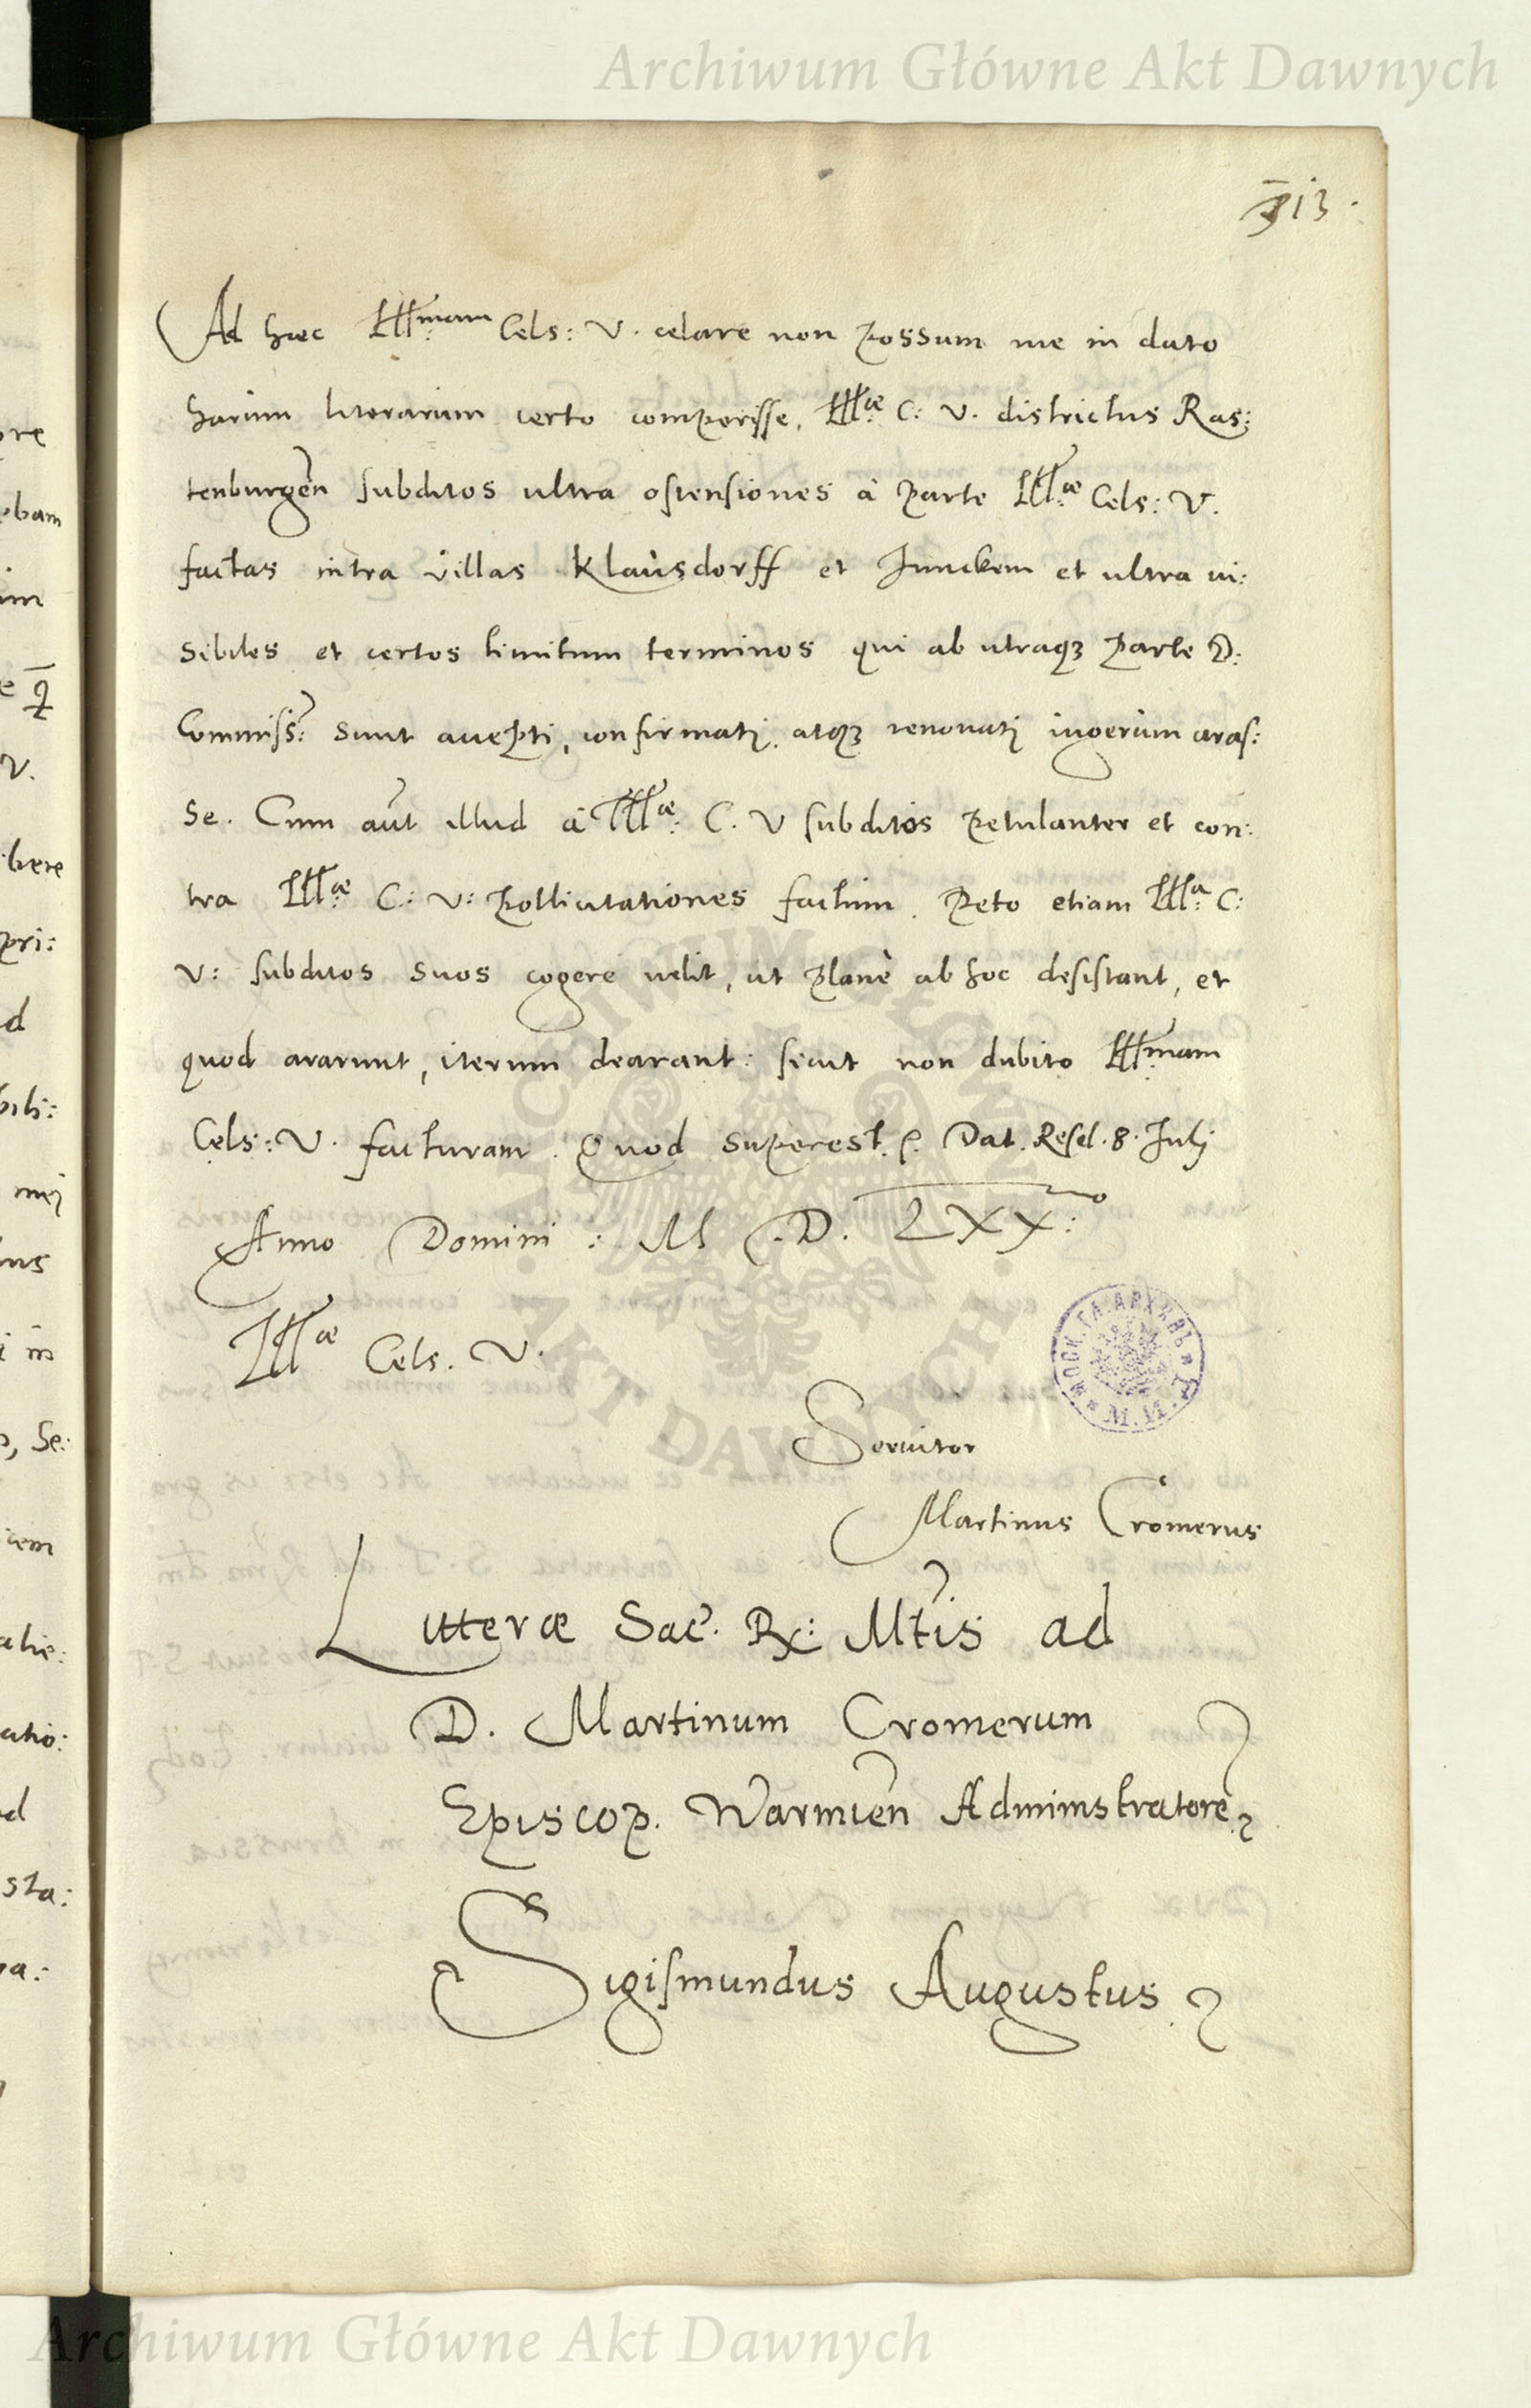 Archiwum Główne Akt Dawnych
313.
Ad haec Illmam Cels: V. celare non possum me in dato
harum literarum certo comperisse, Illae C: V. districtus Ras:
tenburgen subditos ultra ostensiones à parte Illae Cels: V.
factas intra villas Klausdorff et Junckem et ultra vi:
sibiles et certos limitum terminos qui ab utraque parte D:
Commiss: sunt accepti, confirmati, atque renovati iugerum aras:
se. Cum aut illud à Illae C. V subditos petulanter et con:
tra Illae C: V: pollicitationes factum. Peto etiam Illa C:
V: subditos suos cogere velit, ut planè ab hoc desistant, et
quod ararunt, iterum dearant: sicut non dubito Illmam
Cels: V. facturam. Quod superest. Dat. Resel. 8. Julij
Anno Domini: M.D.LXX:o
Illae Cels. V.
Servitor
Martinus Cromerus
Litterae Sac. Rx: Mtis ad
D. Martinum Cromerum
Episcop. Warmien Administratore
Sigismundus Augustus
ARCHIWUM GŁÓWNE
AKT DAWNYCH
МОСК. ГЛ. АРХИВЪ
М. И. Д.
Archiwum Główne Akt Dawnych